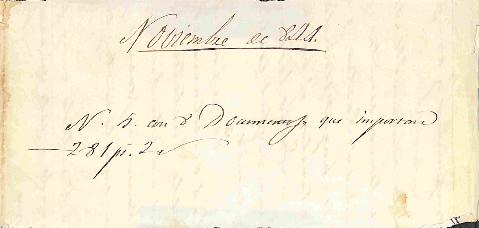 Noviembre de 844.
N. 5. con 8 Documentos que importan
281 ps. 2